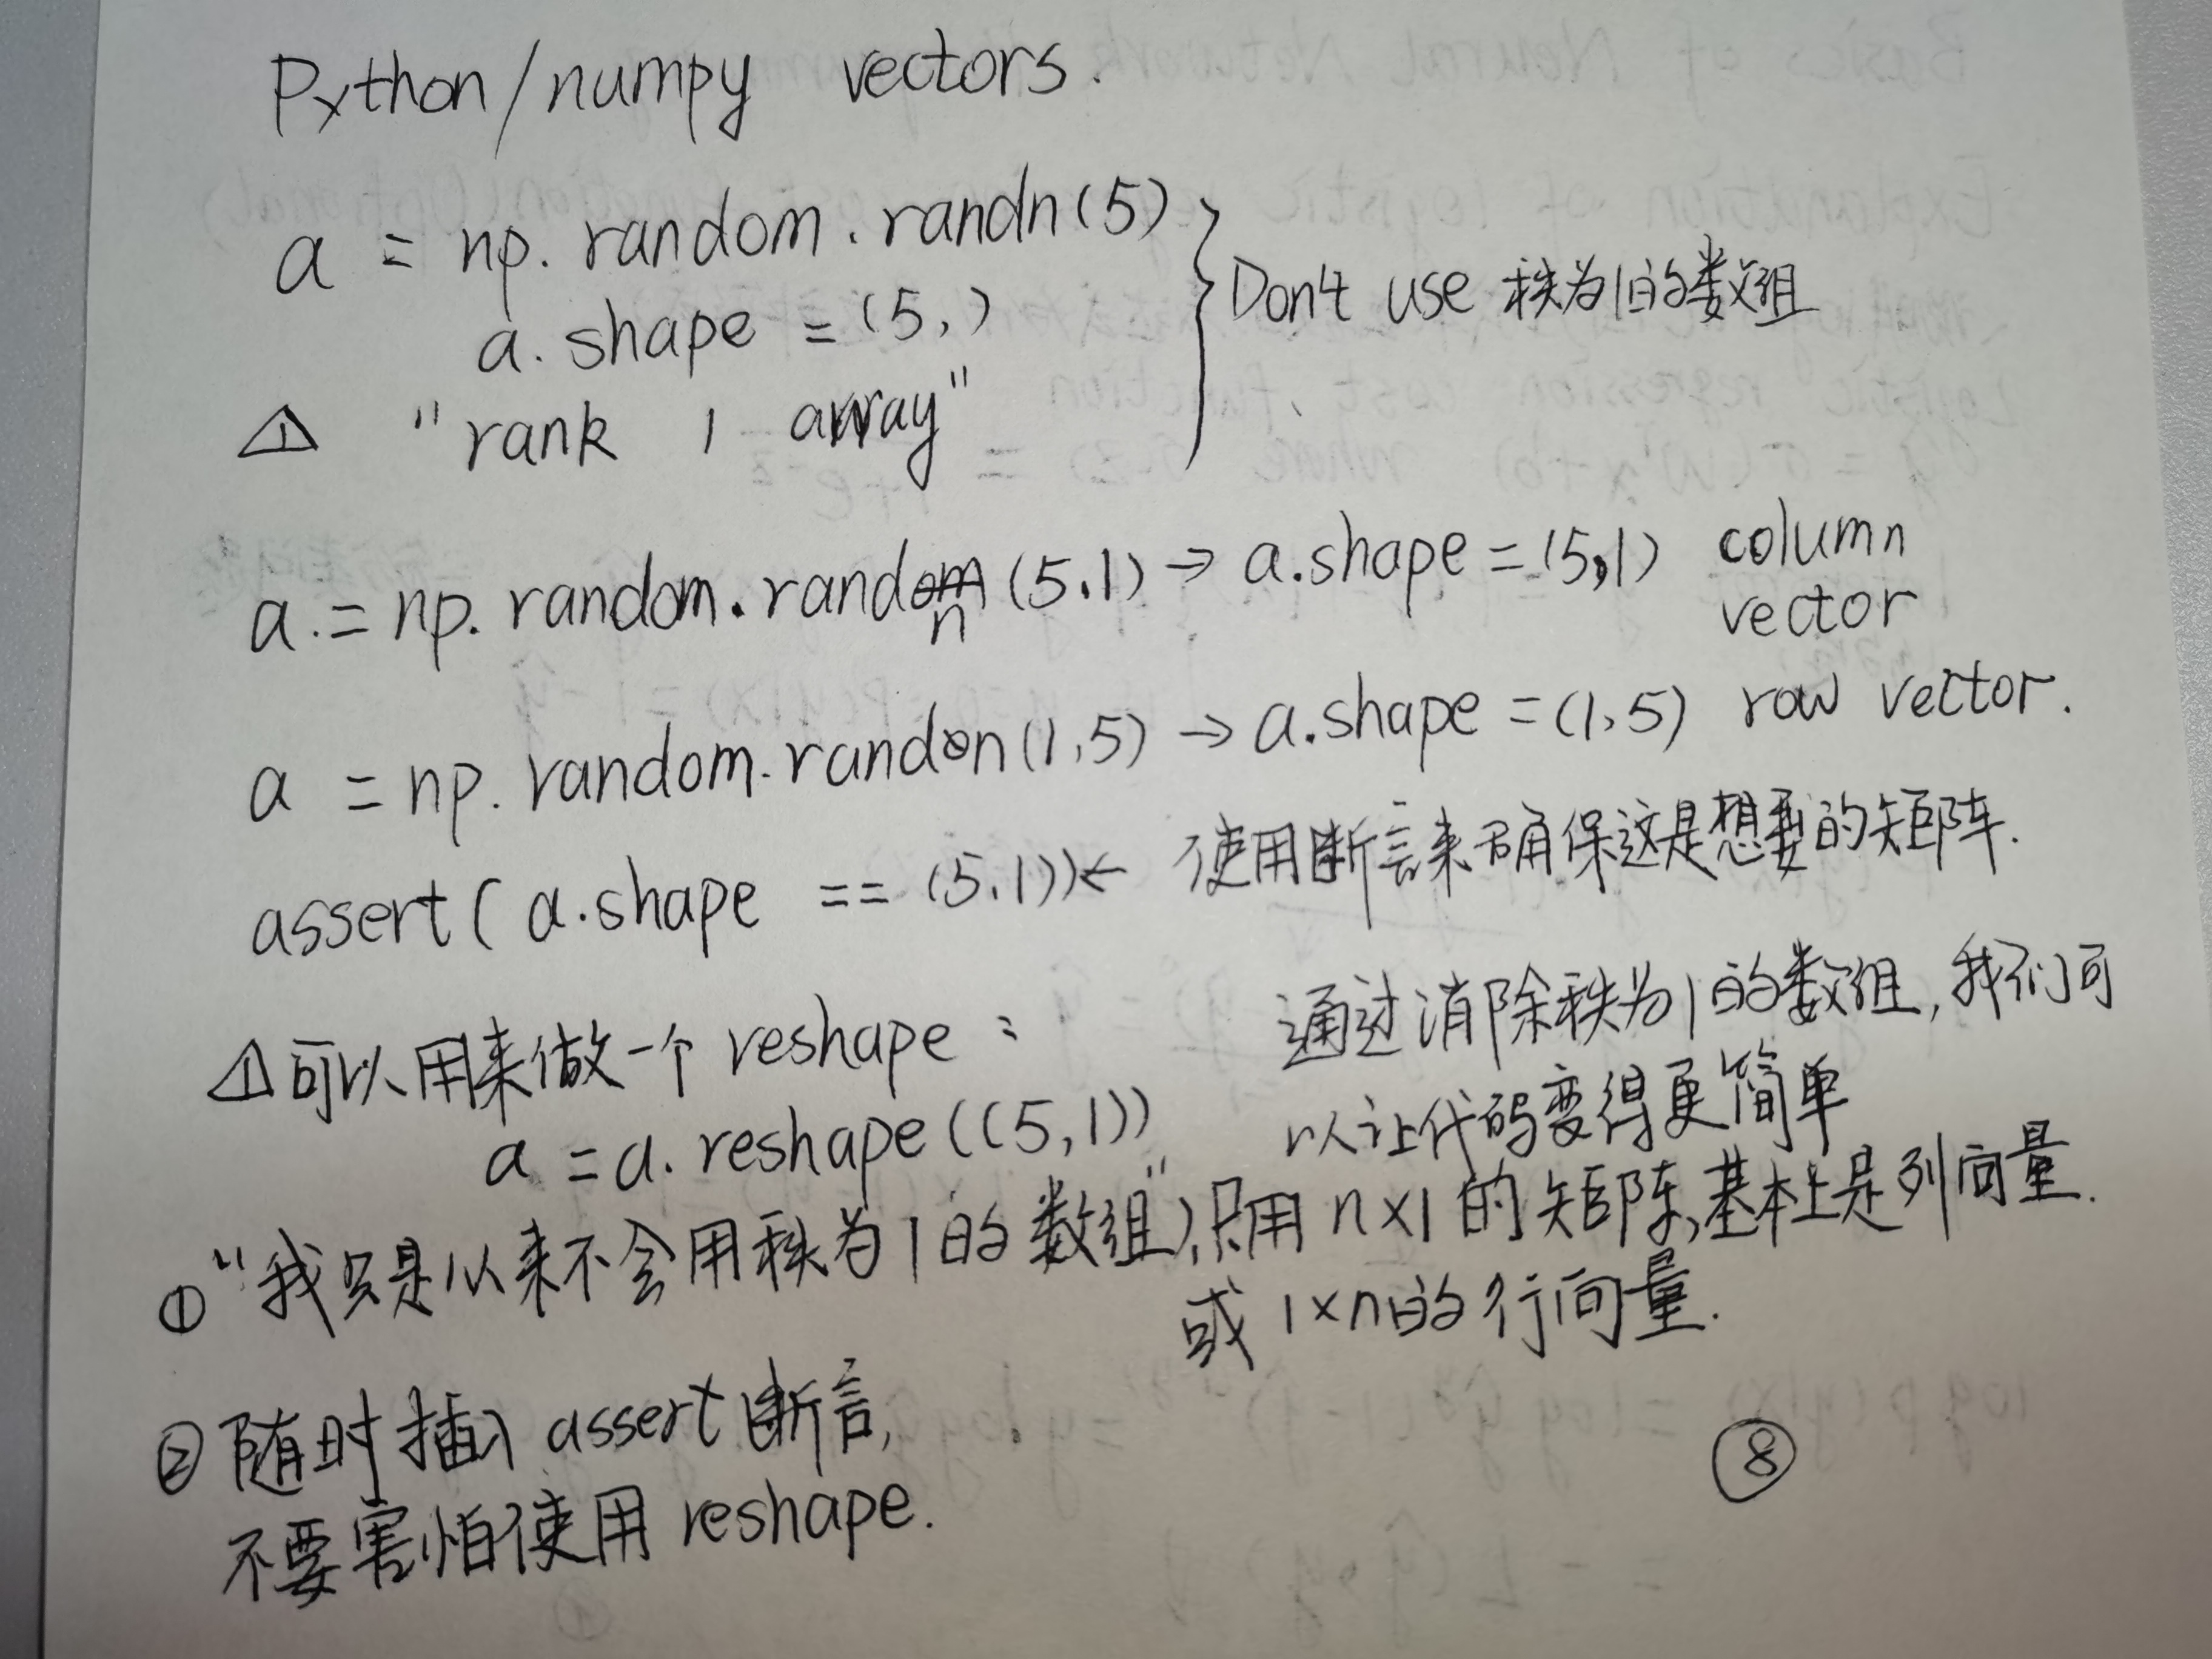 Python/numpy vectors.
a = np.random.randn(5)
a.shape = (5,)
"rank 1 array"
Don't use 秩为1的数组
a = np.random.randn(5,1) → a.shape = (5,1) column
vector
a = np.random.randn(1,5) → a.shape = (1,5) row vector.
assert(a.shape == (5,1)) ← 使用断言来确保这是想要的矩阵.
可以用来做一个 reshape:
a = a.reshape((5,1))
通过消除秩为1的数组,我们可
以让代码变得更简单
① "我只是以来不会用秩为1的数组",只用 n×1 的矩阵,基本上是列向量.
或 1×n的行向量.
② 随时插入 assert 断言,
不要害怕使用 reshape.
⑧